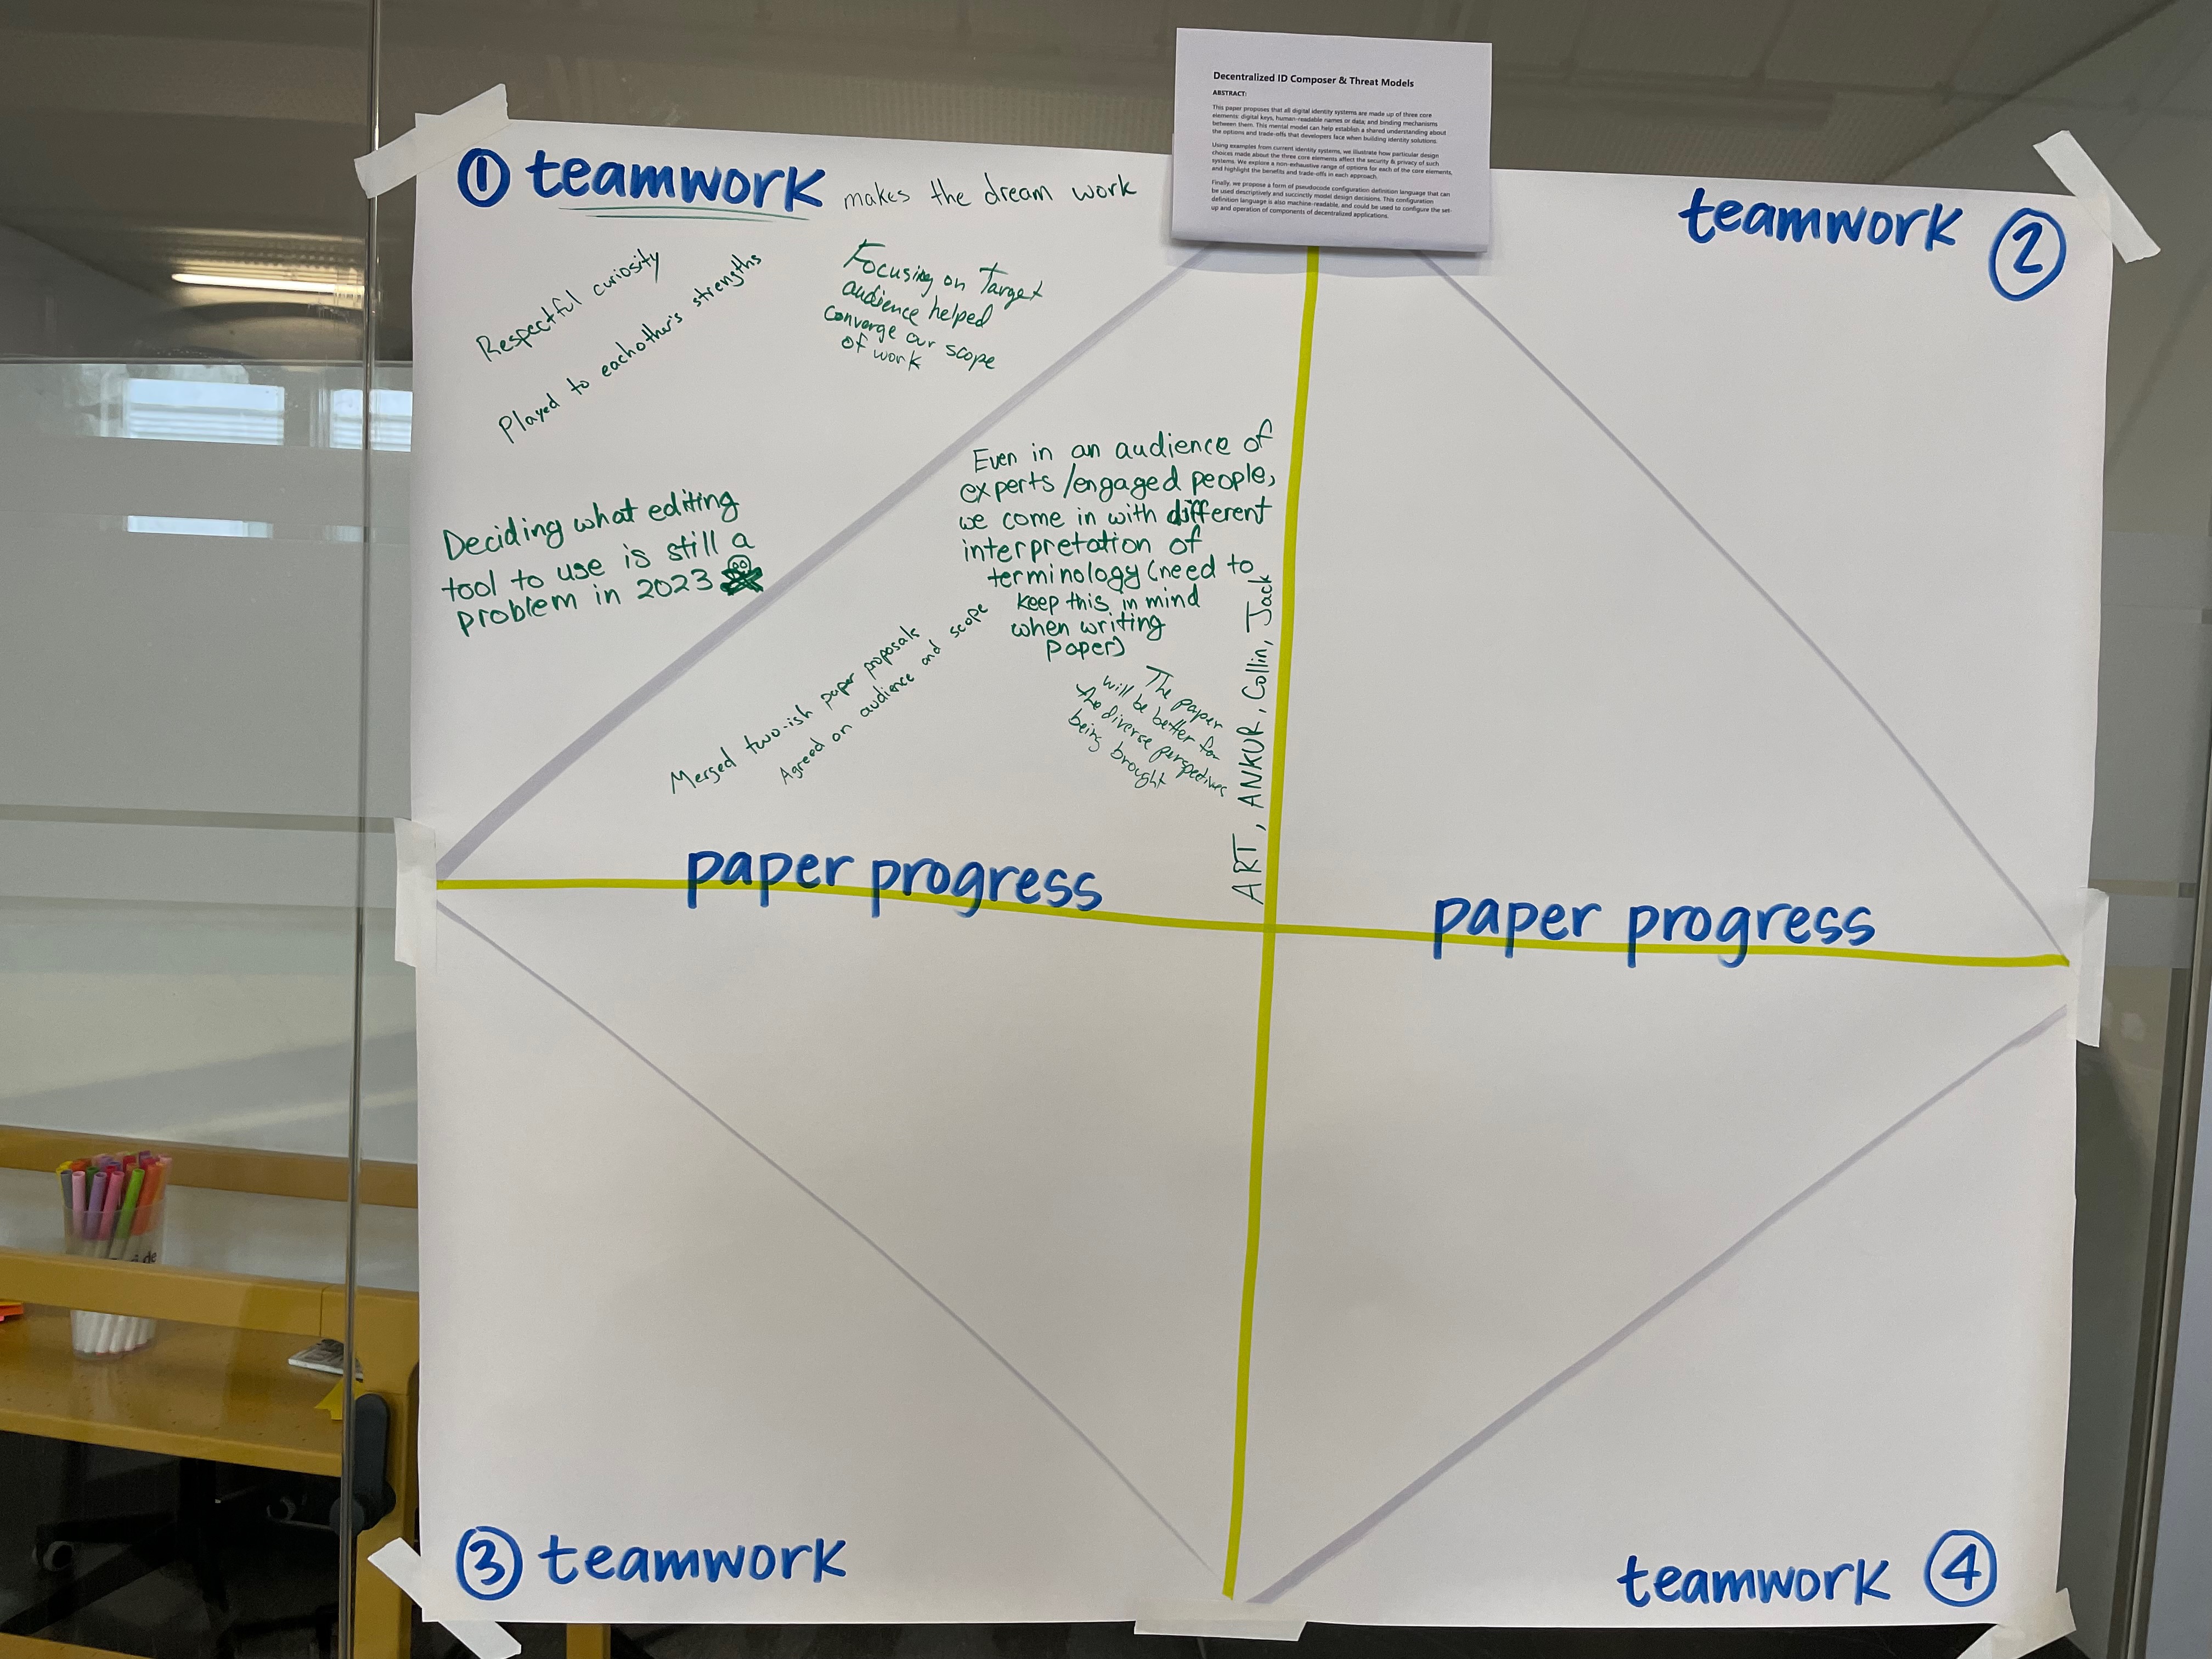 Decentralized ID Composer & Threat Models
ABSTRACT:
This paper proposes that all digital identity systems are made up of three core
elements: digital keys, human-readable names or data, and binding mechanisms
between them. This mental model can help establish a shared understanding about
the options and trade-offs that developers face when building identity solutions.
Using examples from current identity systems, we illustrate how particular design
choices made about the three core elements affect the security & privacy of such
systems. We explore a non-exhaustive range of options for each of the core elements,
and highlight the benefits and trade-offs in each approach.
Finally, we propose a form of pseudocode configuration definition language that can
be used descriptively and succinctly model design decisions. This configuration
definition language is also machine-readable, and could be used to configure the set-
up and operation of components of decentralized applications.
1 teamwork makes the dream work
teamwork 2
Respectful curiosity
Played to eachother's strengths
Focusing on Target
audience helped
converge our scope
of work
Deciding what editing
tool to use is still a
problem in 2023
Even in an audience of
experts/engaged people,
we come in with different
interpretation of
terminology (need to
keep this in mind
when writing
paper)
Merged two-ish paper proposals
Agreed on audience and scope
The paper
will be better for
the diverse perspectives
being brought
ART, ANKUR, Collin, Jack
paper progress
paper progress
3 teamwork
teamwork 4
de